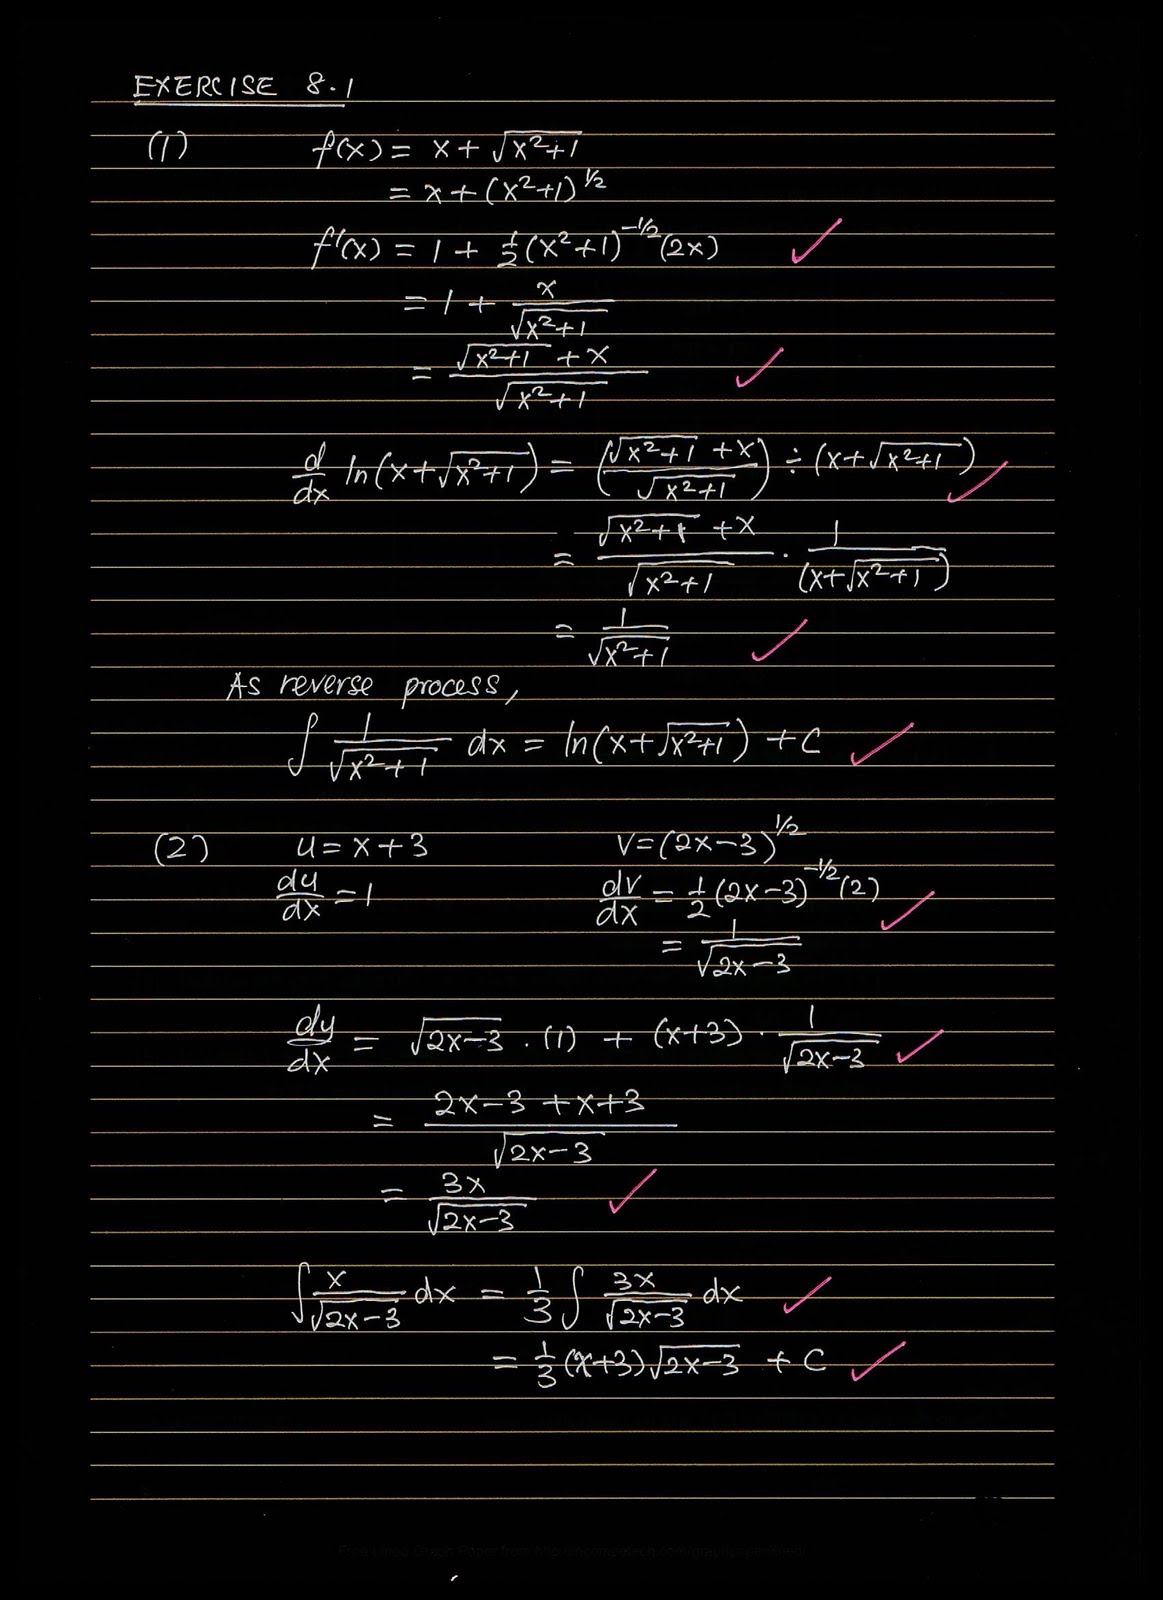 EXERCISE 8.1
(1) f(x) = x + √(x²+1)
= x + (x²+1)^½
f'(x) = 1 + ½(x²+1)^-½(2x) ✓
= 1 + x/√(x²+1)
= (√(x²+1) + x)/√(x²+1) ✓
d/dx ln(x+√(x²+1)) = ((√(x²+1) + x)/√(x²+1)) ÷ (x+√(x²+1)) ✓
= (√(x²+1) + x)/√(x²+1) · 1/(x+√(x²+1))
= 1/√(x²+1) ✓
As reverse process,
∫ 1/√(x²+1) dx = ln(x+√(x²+1)) + C ✓
(2) u = x+3 v = (2x-3)^½
du/dx = 1 dv/dx = ½(2x-3)^-½(2) ✓
= 1/√(2x-3)
dy/dx = √(2x-3) · (1) + (x+3) · 1/√(2x-3) ✓
= (2x-3 + x+3)/√(2x-3)
= 3x/√(2x-3) ✓
∫ x/√(2x-3) dx = ⅓ ∫ 3x/√(2x-3) dx ✓
= ⅓(x+3)√(2x-3) + C ✓